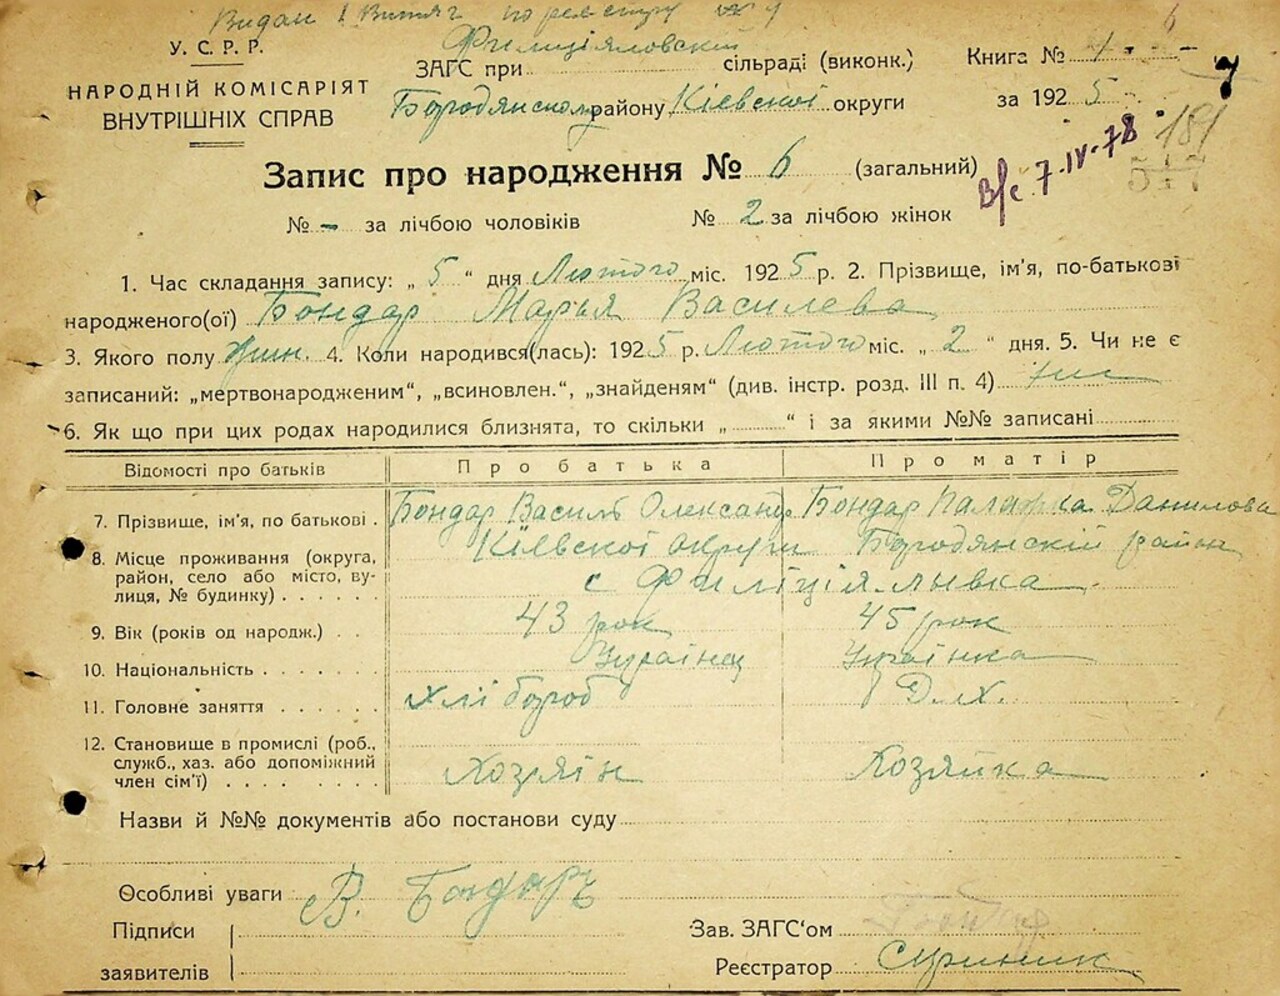 Видан 1 Витяг по реєстру № 4
6
У. С. Р. Р.
НАРОДНІЙ КОМІСАРІЯТ
ВНУТРІШНІХ СПРАВ
Филиціяловскій
ЗАГС при сільраді (виконк.)
Бородянском району Кіевскоі округи
Книга № 1
7
за 1925
181
517
В/с 7-IV-78
Запис про народження № 6 (загальний)
№ - за лічбою чоловіків № 2 за лічбою жінок
1. Час складання запису: „ 5 “ дня Лютого міс. 1925 р. 2. Прізвище, ім'я, по-батькові
народженого(ої) Бондар Марья Василева
3. Якого полу жин. 4. Коли народився(лась): 1925 р. Лютого міс. „ 2 “ дня. 5. Чи не є
записаний: „мертвонародженим“, „всиновлен.“, „знайденям“ (див. інстр. розд. III п. 4) ни
6. Як що при цих родах народилися близнята, то скільки „ “ і за якими №№ записані
Відомості про батьків Про батька Про матір
7. Прізвище, ім'я, по батькові . Бондар Василь Олександ Бондар Палажка Данилова
8. Місце проживання (округа, район, село або місто, вулиця, № будинку) . . . . . . Кіевскоі округи Бородянскій район
с Филіція-лывка
9. Вік (років од народж.) . . 43 рок 45 рок
10. Національність . . . . . . . Українец Українка
11. Головне заняття . . . . . . Хлібороб Д.Х.
12. Становище в промислі (роб., служб., хаз. або допоміжний член сім'ї) . . . . . . . Хозяін Хозяйка
Назви й №№ документів або постанови суду
Особливі уваги В. Бондарь
Підписи
заявителів
Зав. ЗАГС'ом Бондар
Реєстратор Скриник